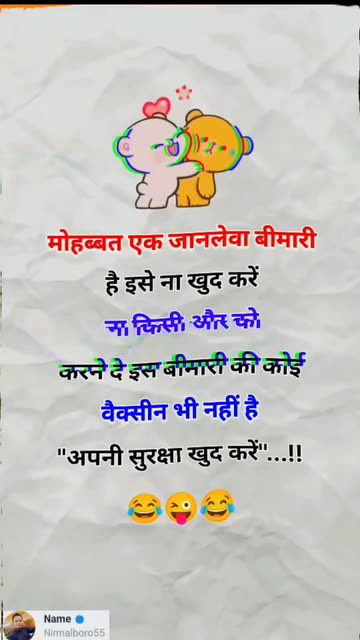 मोहब्बत एक जानलेवा बीमारी
है इसे ना खुद करें
ना किसी और को
करने दे इस बीमारी की कोई
वैक्सीन भी नहीं है
"अपनी सुरक्षा खुद करें"...!!
😂😜😂
Name
Nirmalboro55